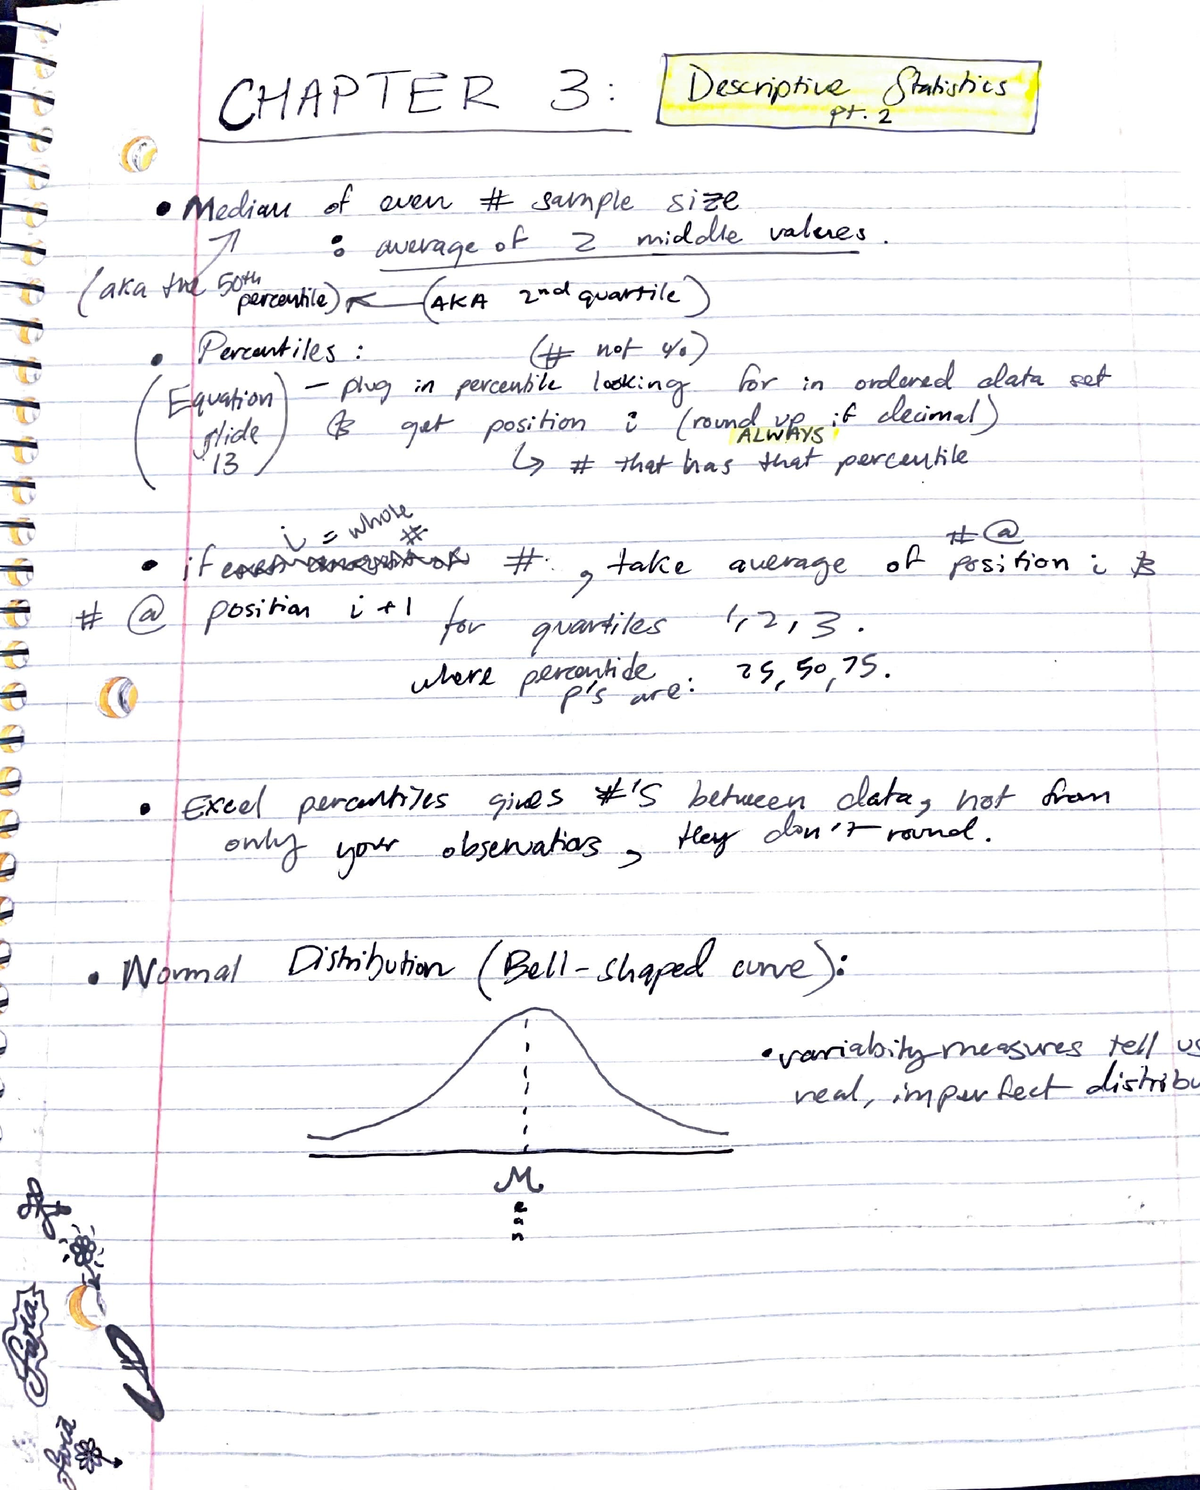 CHAPTER 3: Descriptive Statistics
pt. 2
• Median of even # sample size
: average of 2 middle values.
(aka the 50th percentile) ← (AKA 2nd quartile)
• Percentiles: (# not %)
(Equation slide 13)
– plug in percentile looking for in ordered data set
& get position i (round up if decimal)
ALWAYS
↳ # that has that percentile
i = whole #
• if #, take average of # @ position i &
# @ position i+1
for quartiles 1, 2, 3.
where percentile p's are: 25, 50, 75.
• Excel percentiles gives #'s between data, not from
only your observations, they don't round.
• Normal Distribution (Bell-shaped curve):
• variabity measures tell us
real, imperfect distribu
Mean
Faria